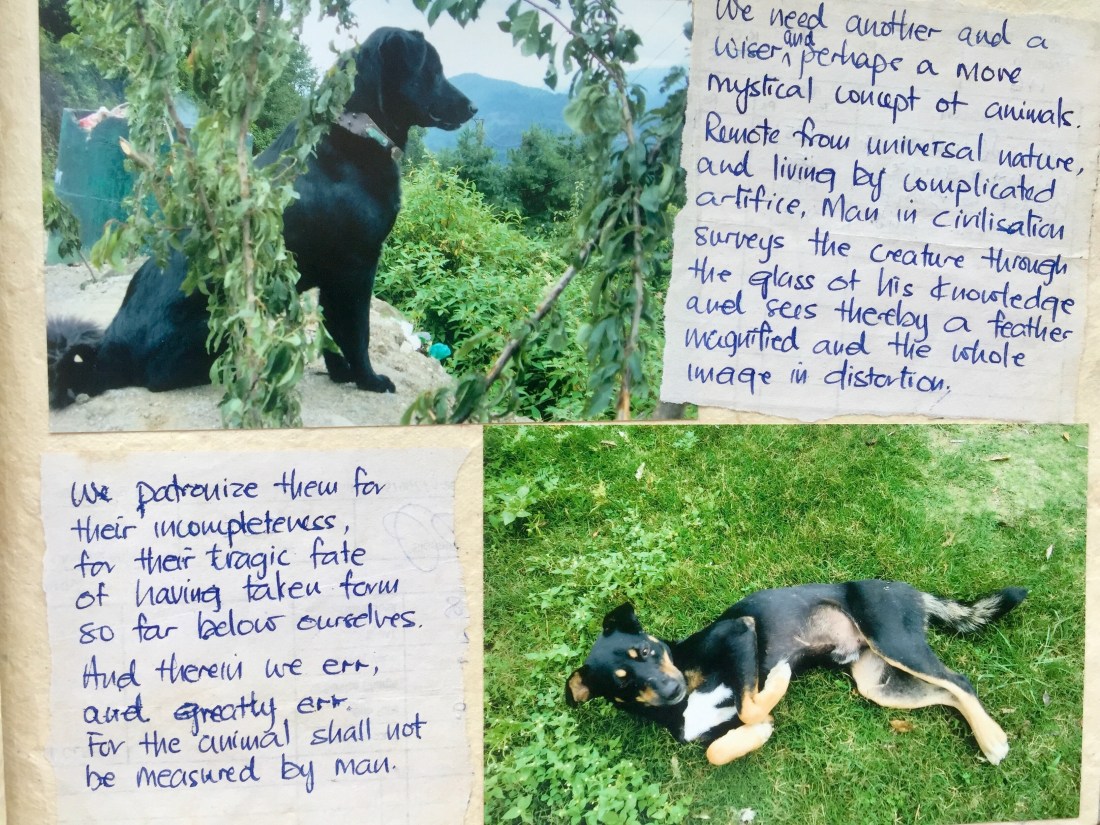 We need another and a
wiser and perhaps a more
mystical concept of animals.
Remote from universal nature,
and living by complicated
artifice, Man in civilisation
surveys the creature through
the glass of his knowledge
and sees thereby a feather
magnified and the whole
image in distortion.
We patronize them for
their incompleteness,
for their tragic fate
of having taken form
so far below ourselves.
And therein we err,
and greatly err.
For the animal shall not
be measured by man.